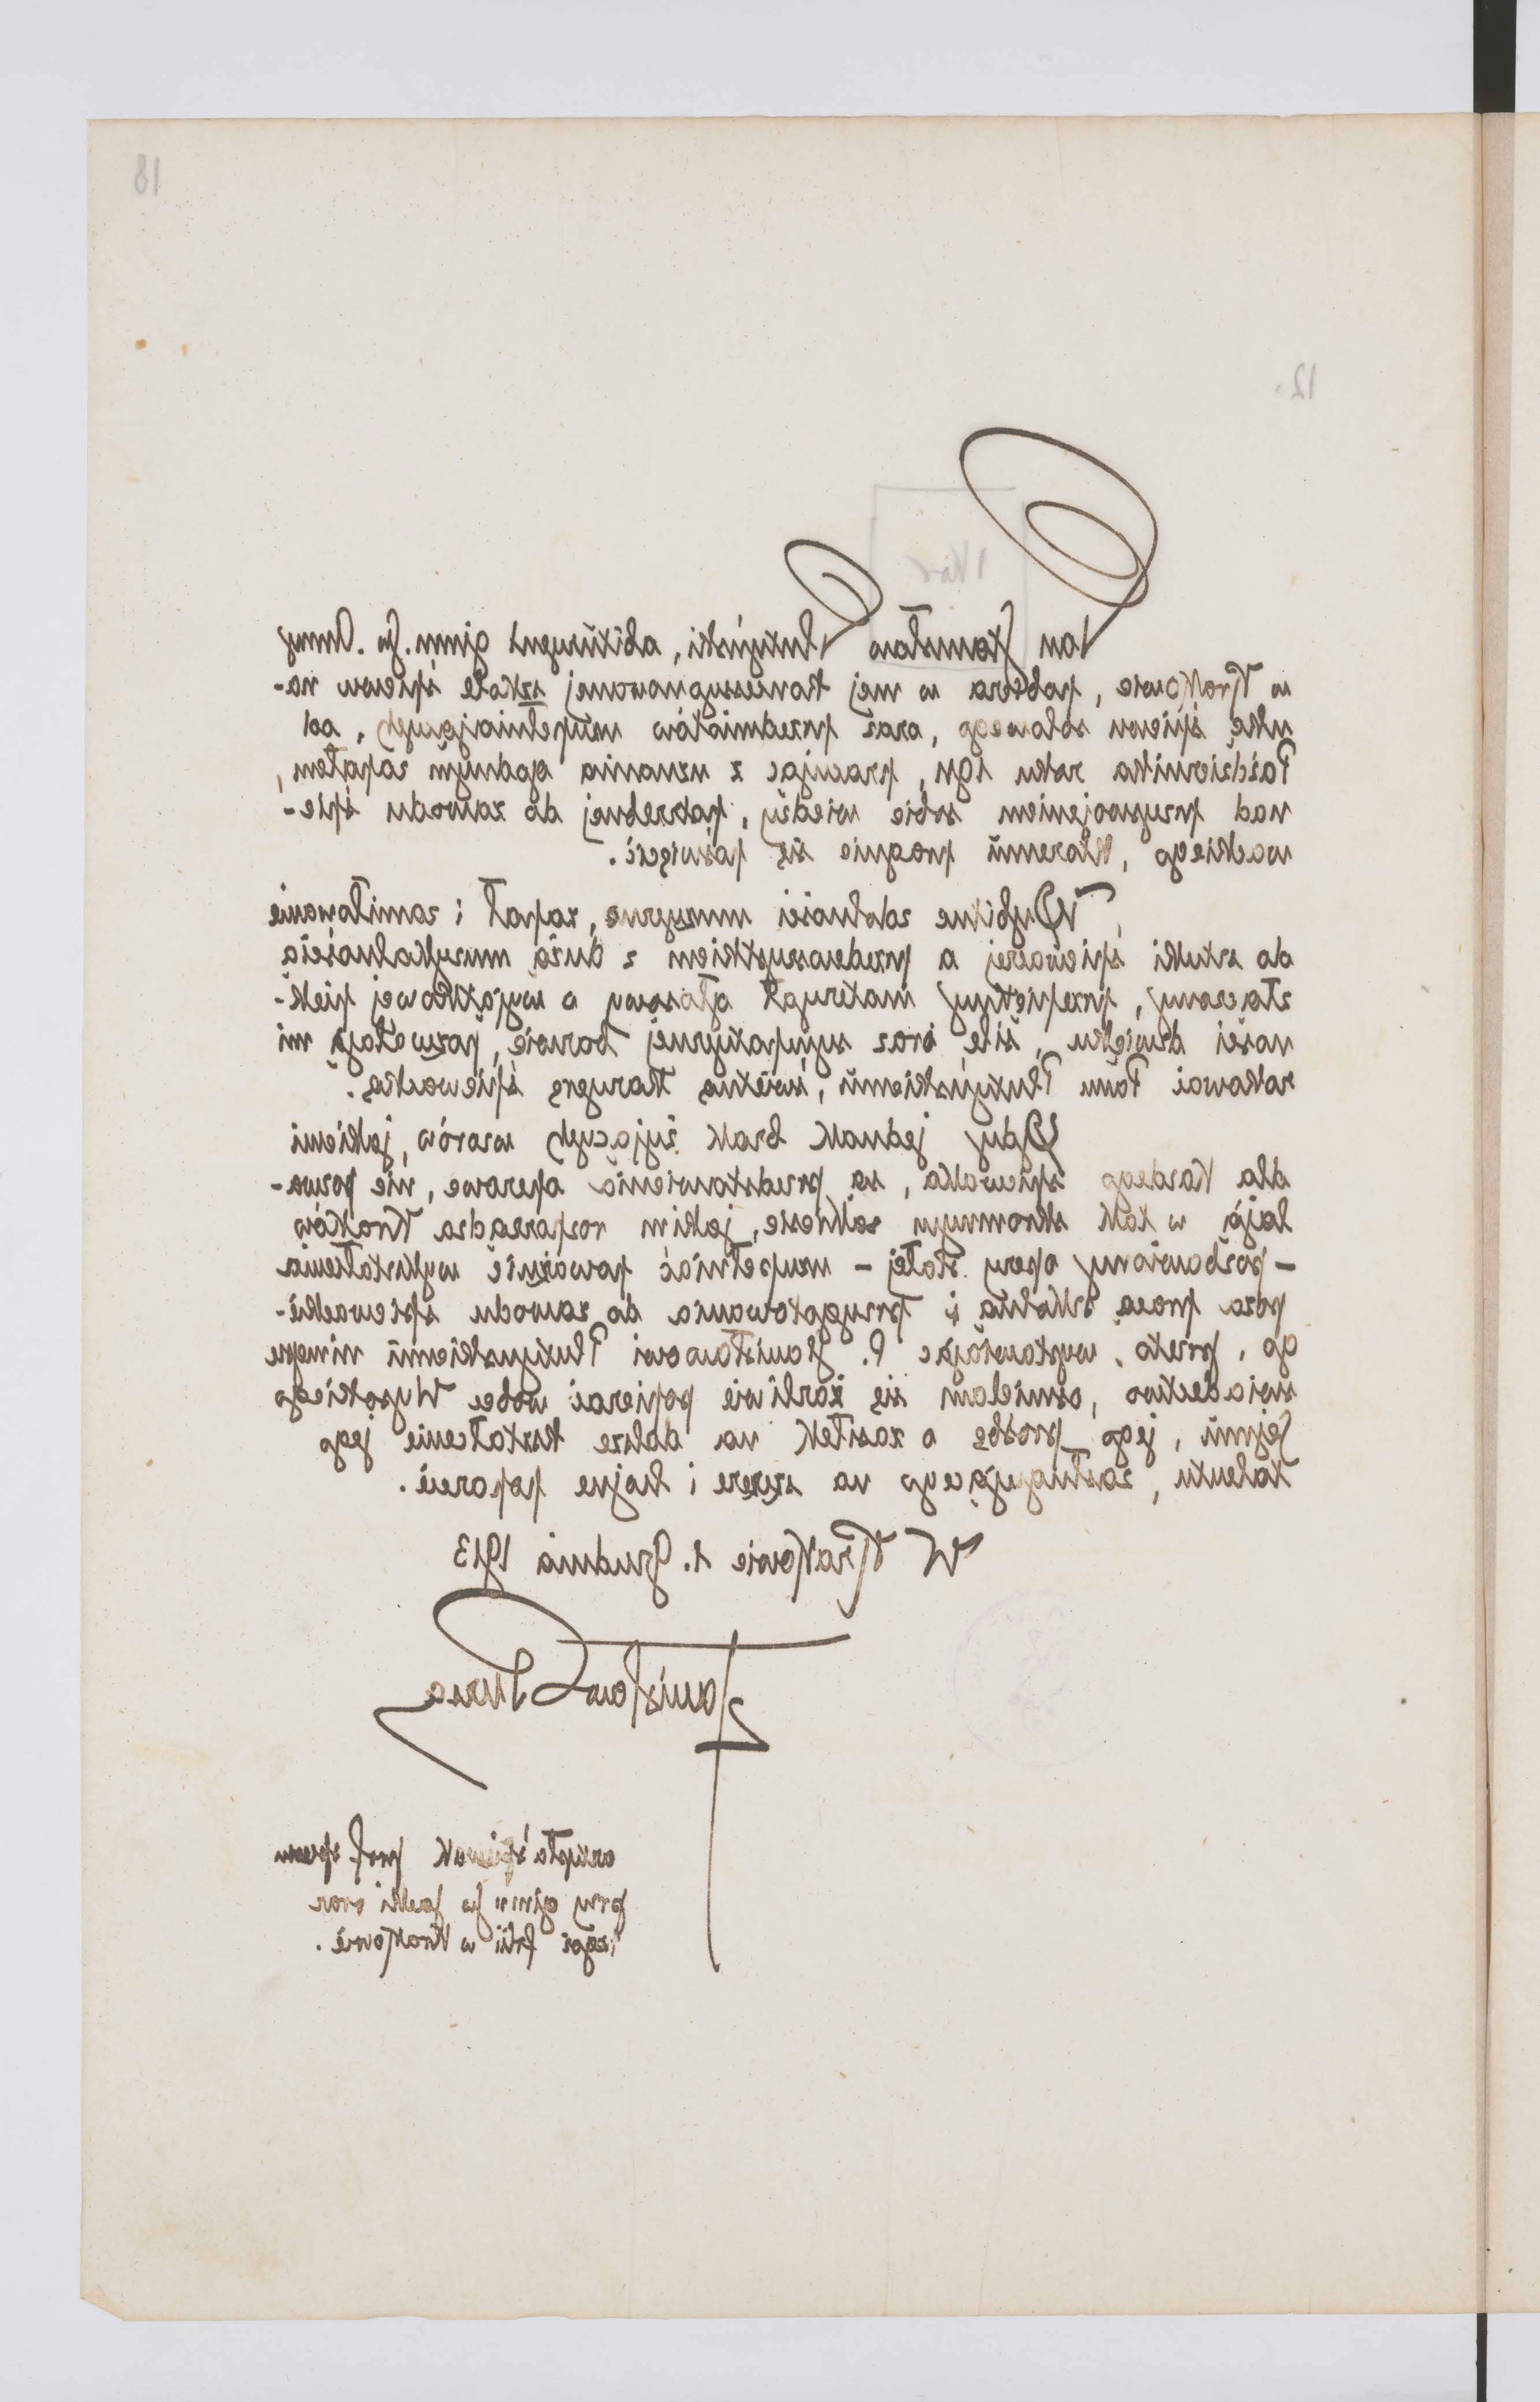 18
12.
Pan Stanisław Plutyński, abitüryent gimn. Św. Anny
w Krakowie, pobiera w mej koncessyonowanej szkole śpiewu na-
ukę śpiewu solowego, oraz przedmiotów uzupełniających, od
Października roku 1911, pracując z uznania godnym zapałem,
nad przyswojeniem sobie wiedzy, potrzebnej do zawodu śpie-
wackiego, któremu pragnie się poświęcić.
Wybitne zdolności muzyczne, zapał i zamiłowanie
do sztuki śpiewaczej a przedewszystkiem z dużą muzykalnością
złączony, przepiękny materyał głosowy o wyjątkowej pięk-
ności dźwięku, sile oraz sympatycznej barwie, pozwalają mi
rokować Panu Plutyńskiemu, świetną karyerę śpiewacką.
Gdy jednak brak żyjących wzorów, jakiemi
dla każdego śpiewaka, są przedstawienia operowe, nie pozwa-
lają w tak skromnym zakresie, jakim rozporządza Kraków
– pozbawiony opery stałej – uzupełniać poważnie wykształcenia
poza pracą szkolną i przygotowania do zawodu śpiewackie-
go, przeto, wystawiając P. Stanisławowi Plutyńskiemu niniejsze
świadectwo, ośmielam się żarliwie popierać wobec Wysokiego
Sejmu, jego prośbę o zasiłek na dalsze kształcenie jego
talentu, zasługującego na szczere i hojne poparcie.
W Krakowie 1. Grudnia 1913
Stanisław Bursa
artysta śpiewak prof. śpiewu
przy gimn Św Jacki oraz
tegoż filii w Krakowie.